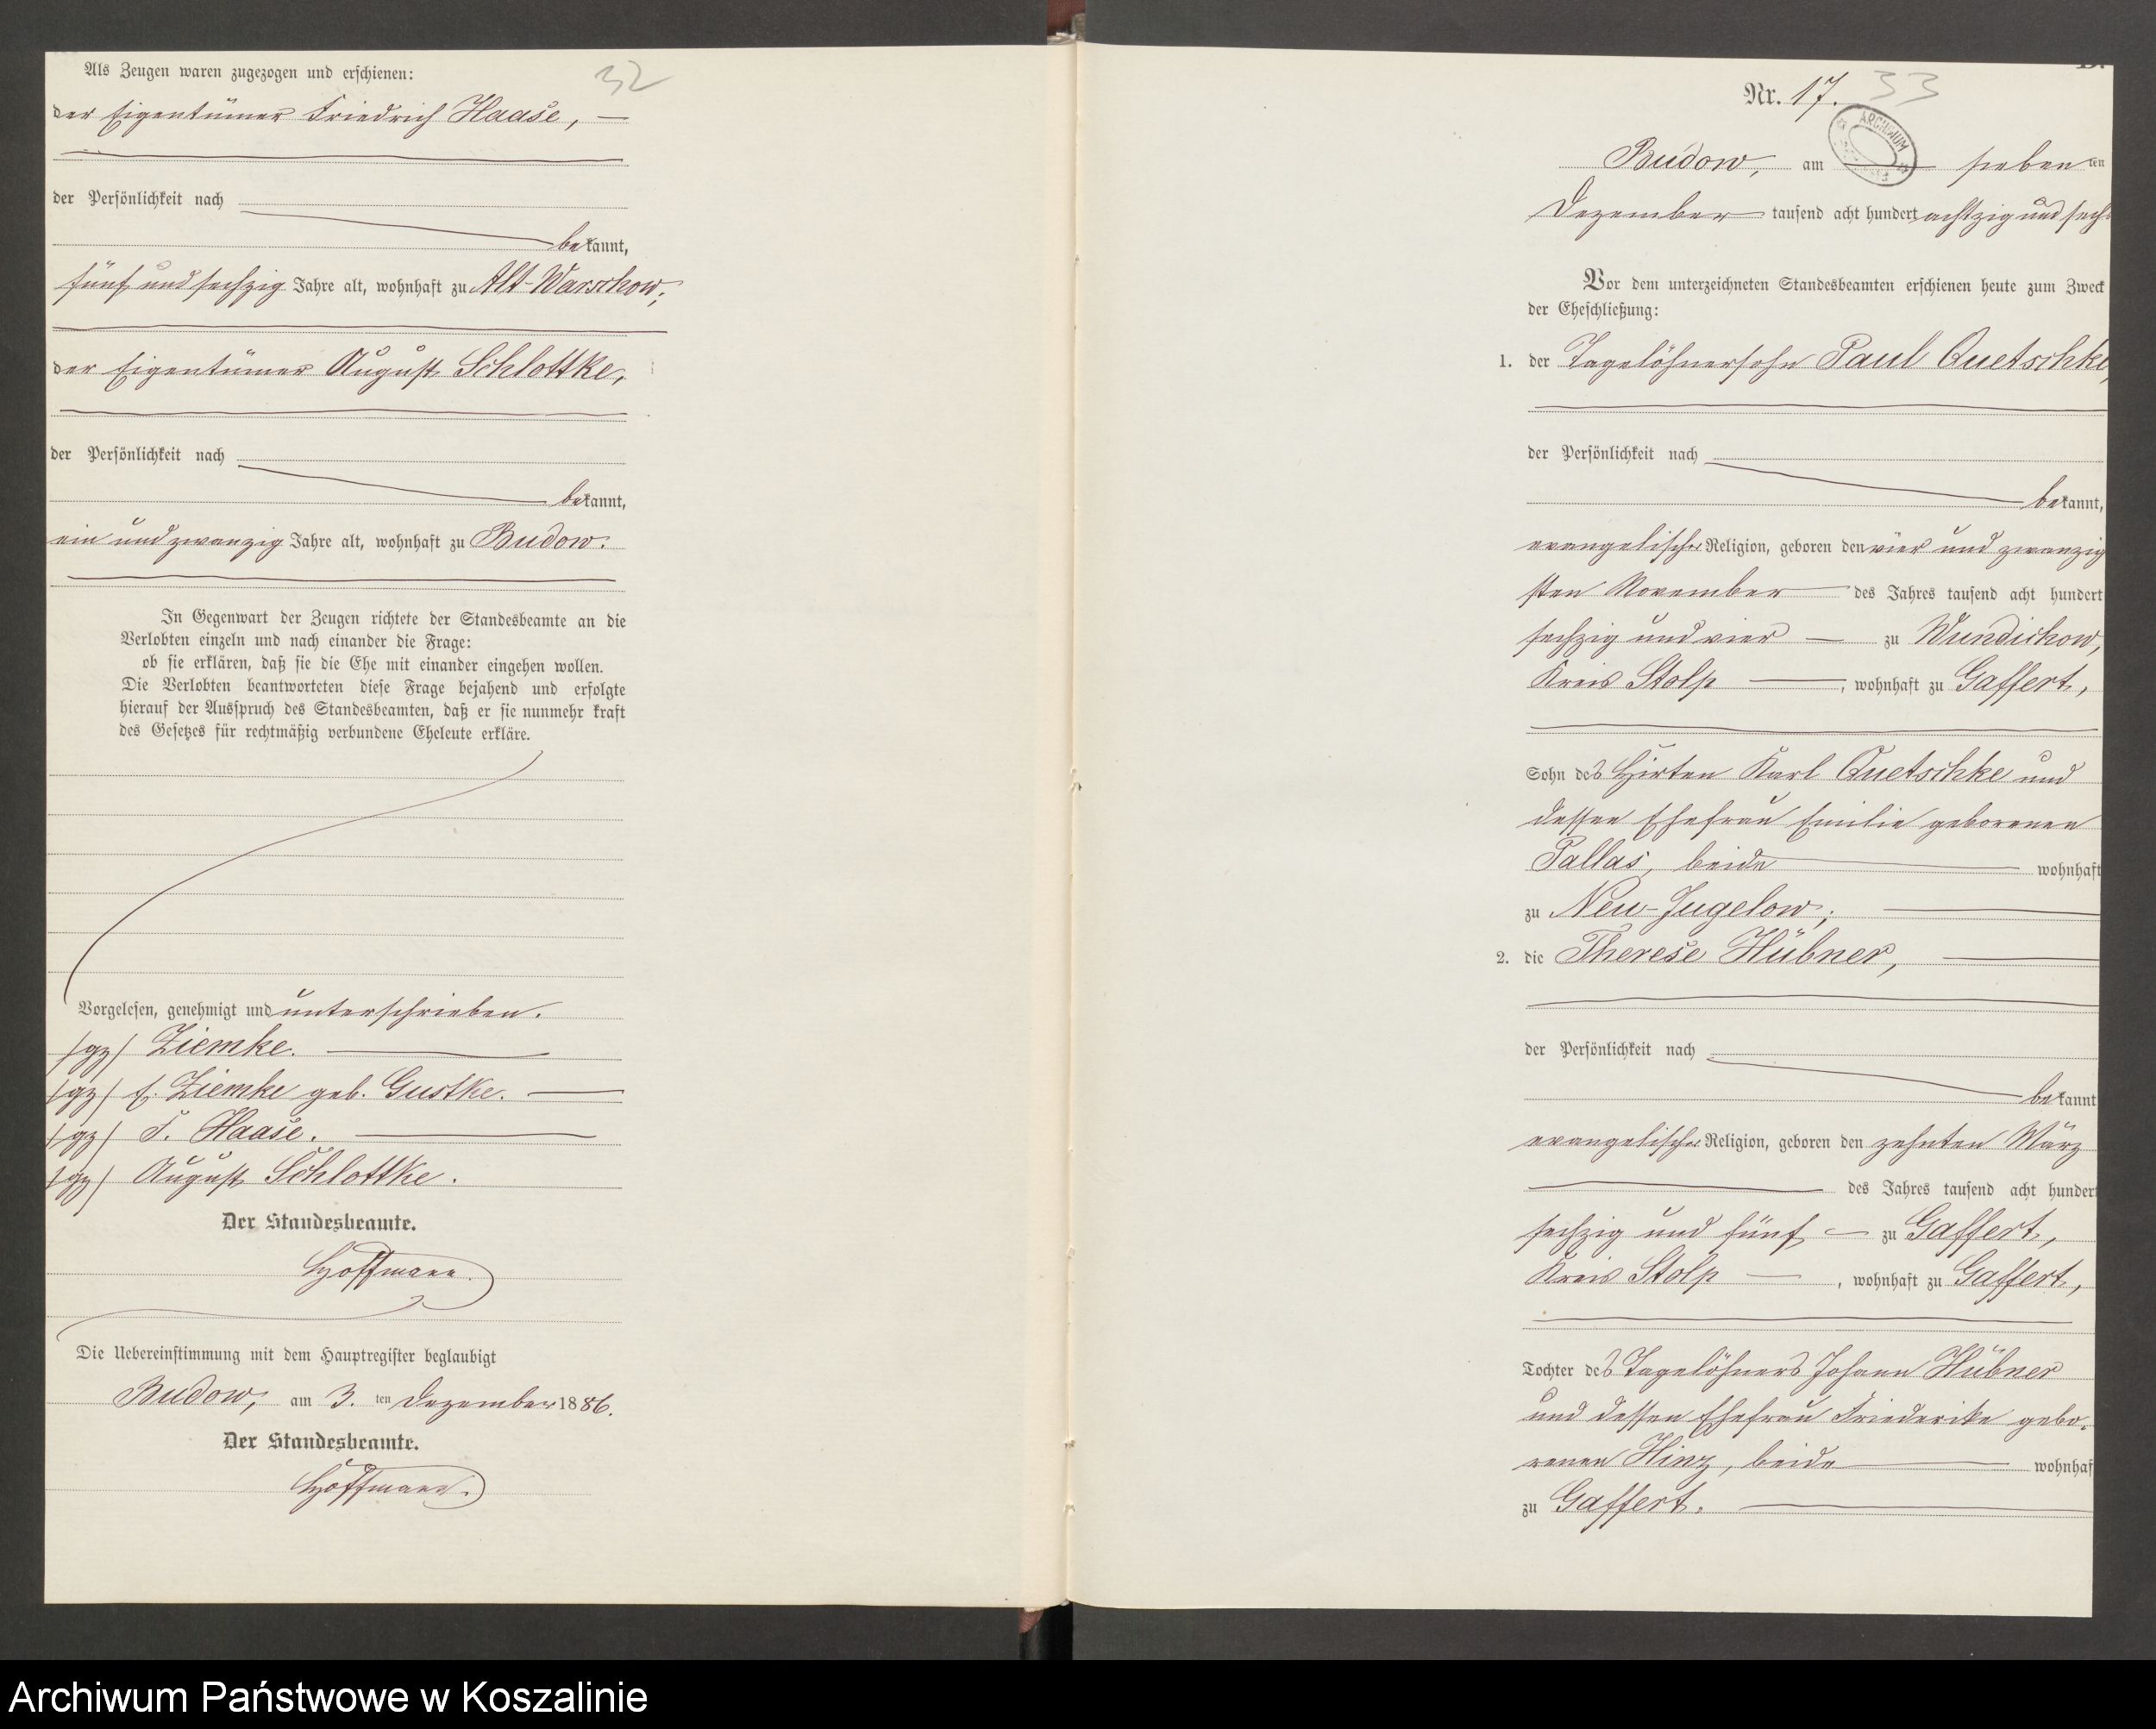 Als Zeugen waren zugezogen und erschienen:
32
der Eigentümer Friedrich Haase, —
der Persönlichkeit nach
bekannt,
fünf und sechzig Jahre alt, wohnhaft zu Alt-Warschow;
der Eigentümer August Schlottke,
der Persönlichkeit nach
bekannt,
ein und zwanzig Jahre alt, wohnhaft zu Budow.
In Gegenwart der Zeugen richtete der Standesbeamte an die
Verlobten einzeln und nach einander die Frage:
ob sie erklären, daß sie die Ehe mit einander eingehen wollen.
Die Verlobten beantworteten diese Frage bejahend und erfolgte
hierauf der Ausspruch des Standesbeamten, daß er sie nunmehr kraft
des Gesetzes für rechtmäßig verbundene Eheleute erkläre.
Vorgelesen, genehmigt und unterschrieben.
/gz/ Ziemke.
/gz/ E. Ziemke geb. Gustke.
/gz/ F. Haase.
/gz/ August Schlottke.
Der Standesbeamte.
Hoffmann.
Die Uebereinstimmung mit dem Hauptregister beglaubigt
Budow, am 3. ten Dezember 1886.
Der Standesbeamte.
Hoffmann.
B.
Nr. 17. 33
ARCHIWUM
Budow, am sieben ten
Dezember tausend acht hundert achtzig und sechs
Vor dem unterzeichneten Standesbeamten erschienen heute zum Zweck
der Eheschließung:
1. der Tagelöhnersohn Paul Quetschke,
der Persönlichkeit nach
bekannt,
evangelischer Religion, geboren den vier und zwanzig
sten November des Jahres tausend acht hundert
sechzig und vier — zu Wundichow,
Kreis Stolp —, wohnhaft zu Gaffert,
Sohn des Hirten Karl Quetschke und
dessen Ehefrau Emilie geborenen
Pallas, beide wohnhaft
zu Neu-Jugelow;
2. die Therese Hübner,
der Persönlichkeit nach
bekannt
evangelischer Religion, geboren den zehnten März
des Jahres tausend acht hundert
sechzig und fünf — zu Gaffert,
Kreis Stolp —, wohnhaft zu Gaffert,
Tochter des Tagelöhners Johann Hübner
und dessen Ehefrau Friederike gebo-
renen Hinz, beide wohnhaf
zu Gaffert.
Archiwum Państwowe w Koszalinie